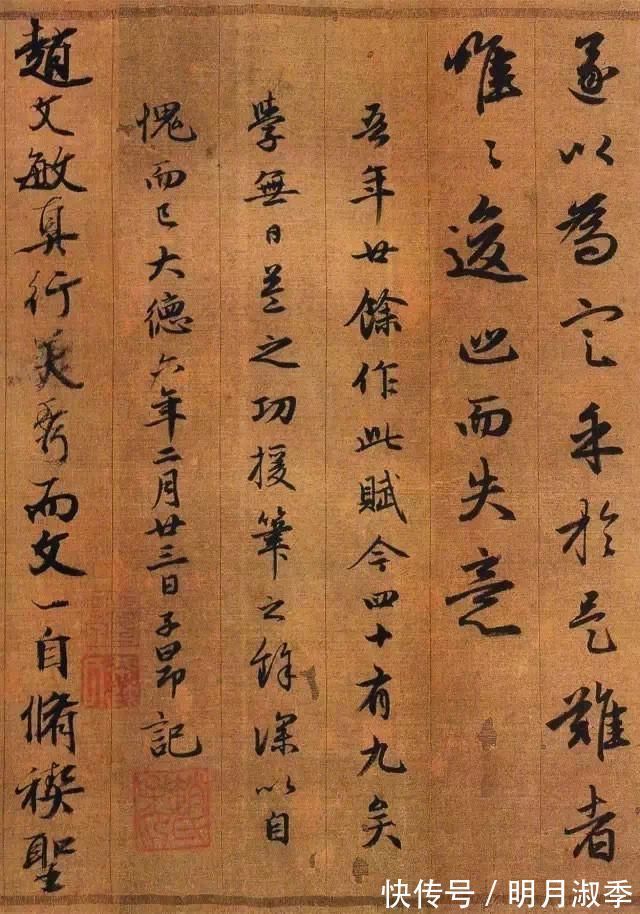 遂以為定乎於是難者
唯〻逡巡而失意
吾年廿餘作此賦今四十有九矣
學無日益之功援筆之餘深以自
愧而已大德六年二月廿三日子昂記
趙文敏真行美秀而文一自脩禊聖
快传号/明月淑季